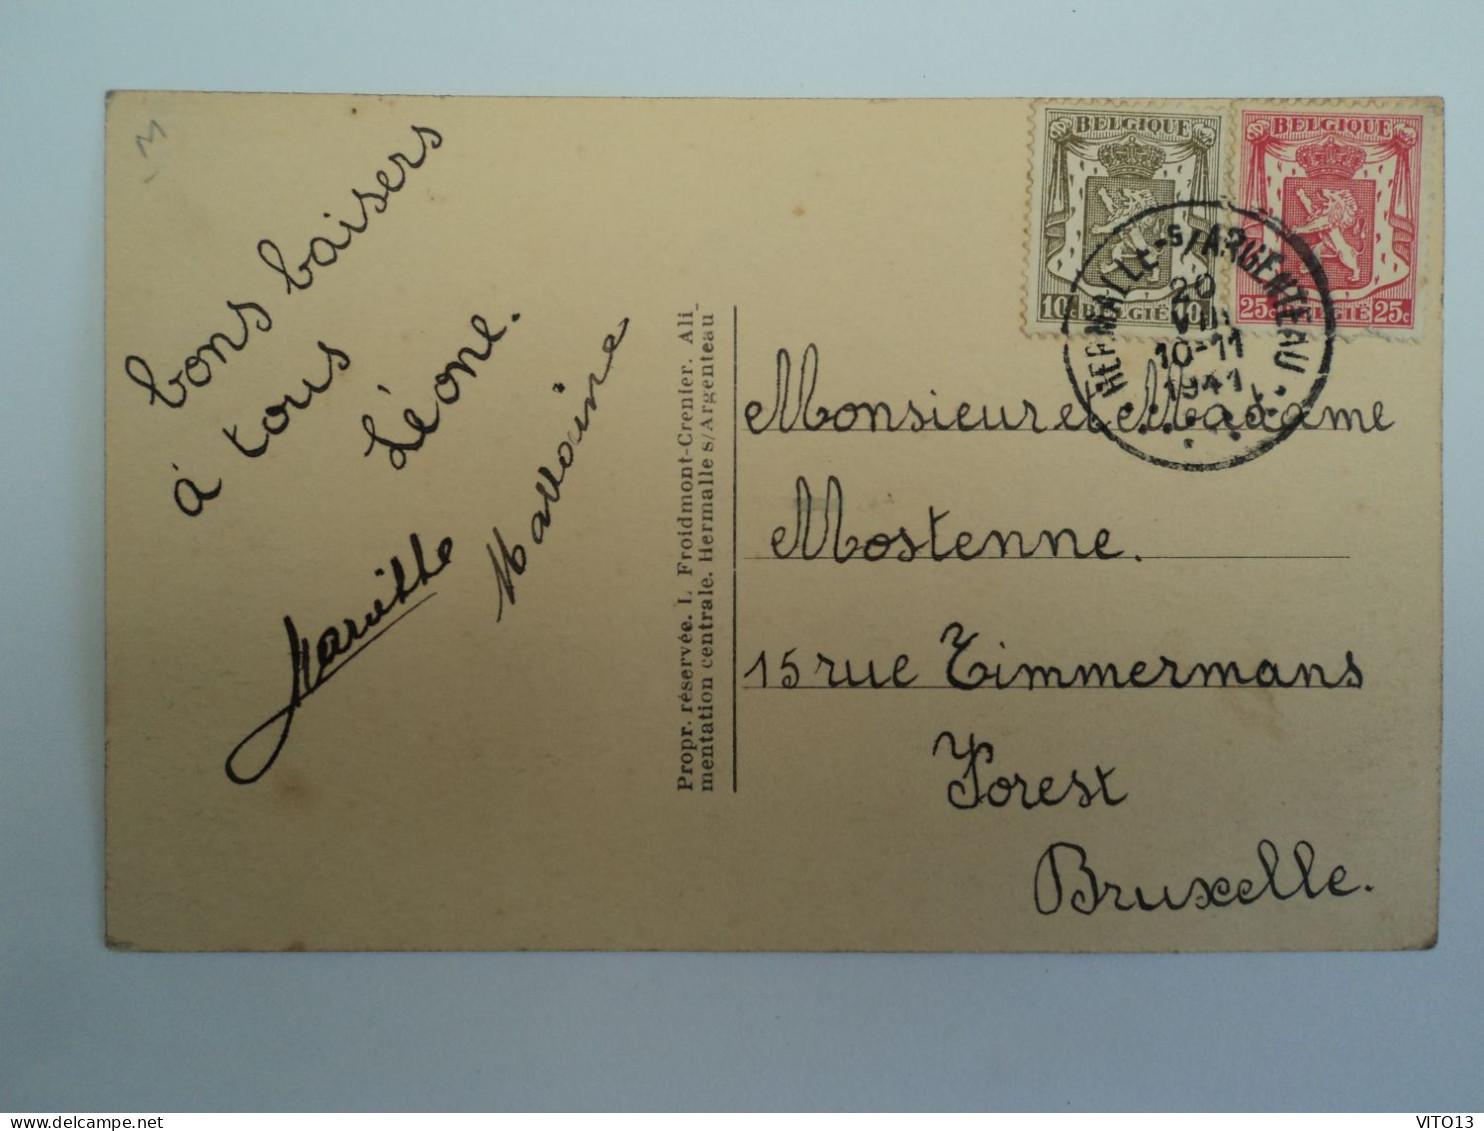 bons baisers
à tous
Léone.
Propr. réservée. L. Froidmont-Crenier. Ali-
mentation centrale. Hermalle s/Argenteau
BELGIQUE
10c BELGIË 10c
BELGIQUE
25c BELGIË 25c
HERMALLE-S/ARGENTEAU
20
VIII
10-11
1941
Monsieur et Madame
Mostenne.
15 rue Timmermans
Forest
Bruxelle.
VITO13